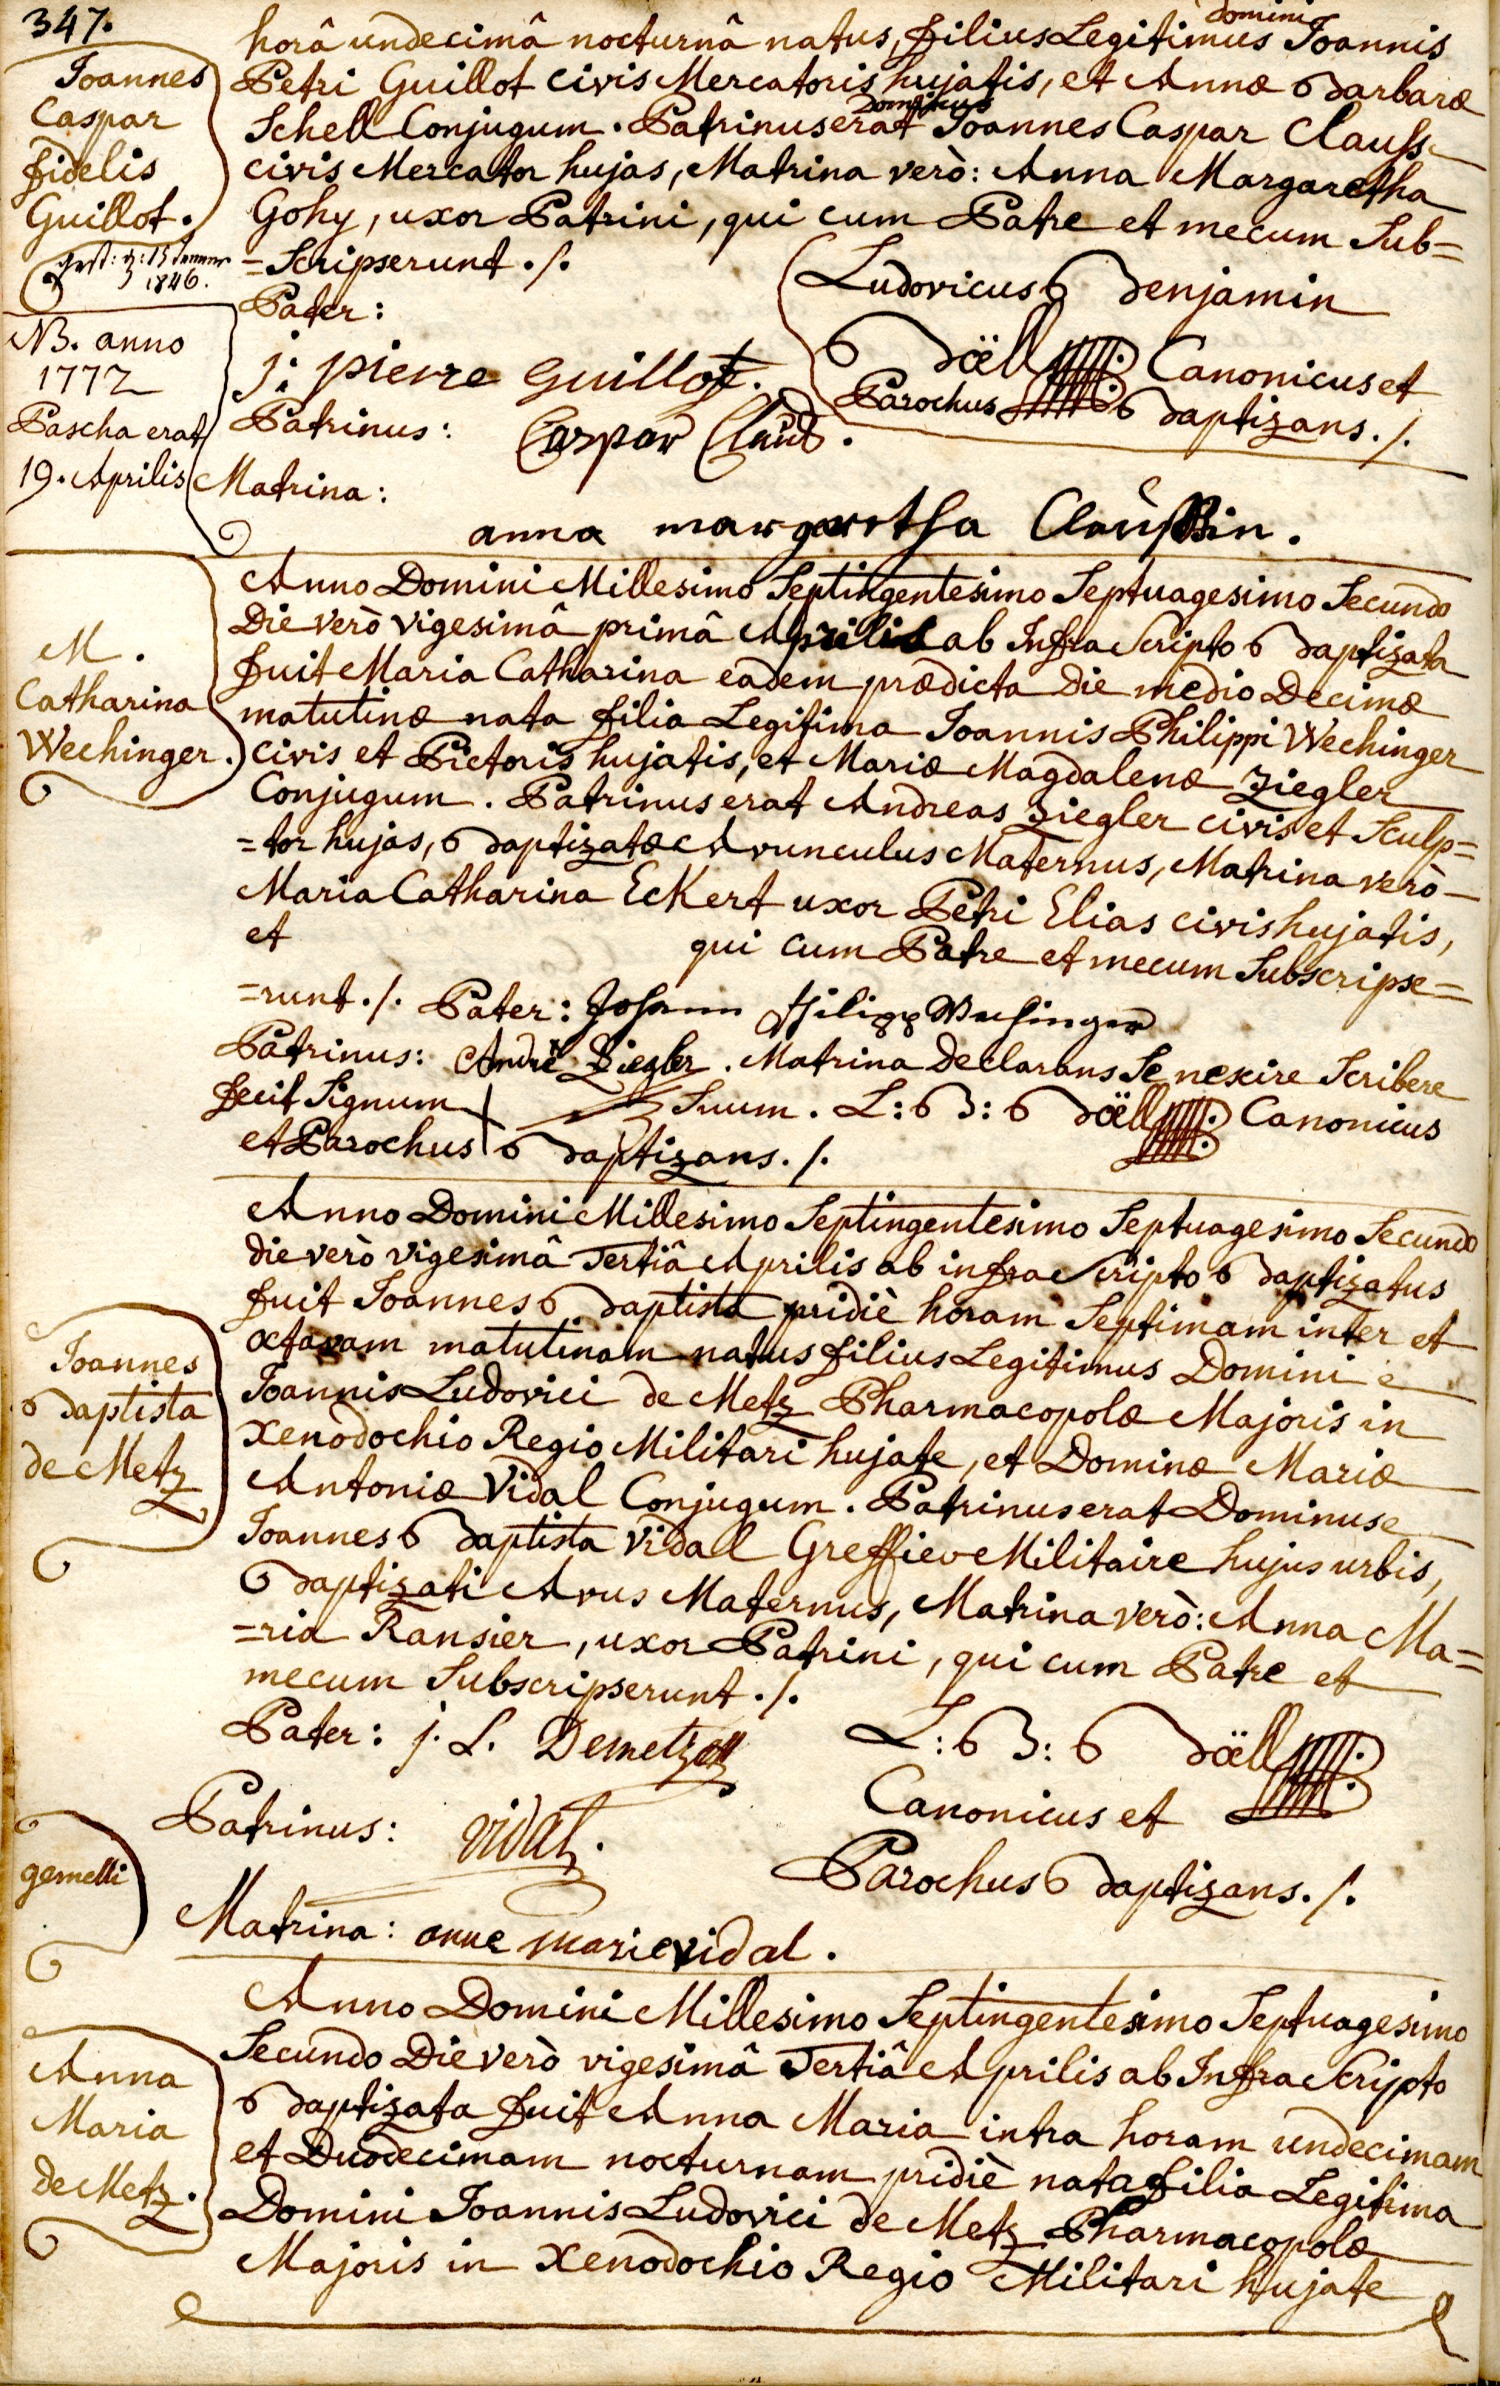 347.
Joannes
Caspar
fidelis
Guillot.
gest: d: 15 Jenner
1846.
NB. anno
1772
Pascha erat
19. Aprilis
domini
horâ undecimâ nocturnâ natus, filius Legitimus Joannis
Petri Guillot civis Mercatoris hujatis, et Annæ Barbaræ
Dominus
Schell Conjugum. Patrinus erat Joannes Caspar Clauss
civis Mercator hujas, Matrina verò: Anna Margaretha
Gohy, uxor Patrini, qui cum Patre et mecum Sub=
=Scripserunt ./.
Pater:
j: pierre Guillot.
Patrinus: Caspar Claus.
Ludovicus Benjamin
Böell Canonicus et
Parochus Baptizans ./.
Matrina:
anna margaretha Claussin.
M.
Catharina
Wechinger.
Anno Domini Millesimo Septingentesimo Septuagesimo Secundo
Die verò vigesimâ primâ Aprilis ab Infra Scripto Baptizata
fuit Maria Catharina eadem prædicta die medio Decimæ
matutinæ nata filia Legitima Joannis Philippi Wechinger
civis et Pictoris hujatis, et Mariæ Magdalenæ Ziegler
Conjugum. Patrinus erat Andreas Ziegler civis et Sculp=
=tor hujas, Baptizatæ Avunculus Maternus, Matrina verò
Maria Catharina Eckert uxor Petri Elias civis hujatis,
et qui cum Patre et mecum Subscripse=
=runt ./. Pater: Johann Philipp Wechinger
Patrinus: André Ziegler. Matrina Declarans Se nescire Scribere
fecit Signum Suum. L: B: Böell Canonicus
et Parochus Baptizans ./.
Joannes
Baptista
de Metz
Anno Domini Millesimo Septingentesimo Septuagesimo Secundo
die verò vigesimâ Tertiâ Aprilis ab infra Scripto Baptizatus
fuit Joannes Baptista pridiè horam Septimam inter et
octavam matutinam natus filius Legitimus Domini
Joannis Ludovici de Metz Pharmacopolæ Majoris in
Xenodochio Regio Militari hujate, et Dominæ Mariæ
Antoniæ Vidal Conjugum. Patrinus erat Dominus
Joannes Baptista Vidal Greffier Militaire hujus urbis,
Baptizati Avus Maternus, Matrina verò: Anna Ma=
=ria Ransier, uxor Patrini, qui cum Patre et
mecum Subscripserunt ./.
Pater: j. L. Demetz
Patrinus: vidal.
L: B: Böell
Canonicus et
Parochus Baptizans ./.
Matrina: anne marie vidal.
gemelli
Anna
Maria
de Metz.
Anno Domini Millesimo Septingentesimo Septuagesimo
Secundo Die verò vigesimâ Tertiâ Aprilis ab Infra Scripto
Baptizata fuit Anna Maria intra horam undecimam
et Duodecimam nocturnam pridiè nata filia Legitima
Domini Joannis Ludovici de Metz Pharmacopolæ
Majoris in Xenodochio Regio Militari hujate